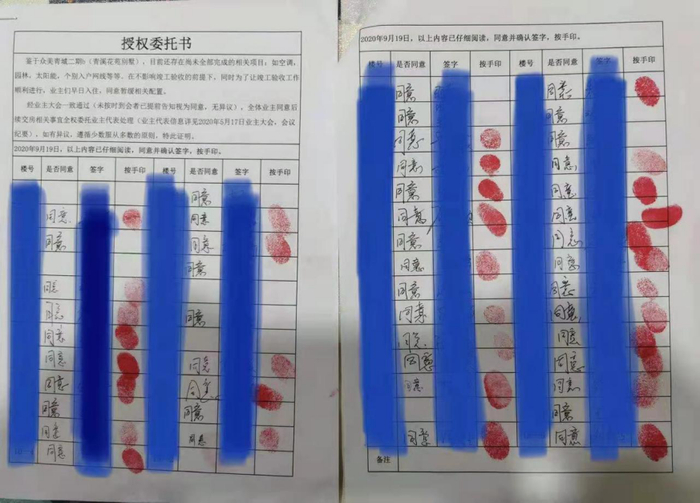 授权委托书
鉴于众美青城二期c(香溪花苑别墅),目前还存在尚未全部完成的相关项目:如空调,
园林,太阳能,个别入户网线等等。在不影响竣工验收的前提下,同时为了让竣工验收工作
顺利进行,业主们早日入住,同意暂缓相关配置。
经业主大会一致通过(未按时到会者已提前告知视为同意,无异议),全体业主同意后
续交房相关事宜全权委托业主代表处理(业主代表信息详见2020年5月17日业主大会,会议
纪要),如有异议,遵循少数服从多数的原则,特此证明。
2020年9月19日,以上内容已仔细阅读,同意并确认签字,按手印。
楼号 是否同意 签字 按手印 楼号 是否同意 签字 按手印
同意
同意 同意
同意 同意
同意
同意
同意 同意
同意
同意 同意
同意 同意
同意 同意
同意 同意
同意
2020年9月19日,以上内容已仔细阅读,同意并确认签字,按手印。
楼号 是否同意 签字 按手印 楼号 是否同意 签字 按手印
同意 同意
同意 同意
同意 同意
同意 同意
同意 同意
同意 同意
同意 同意
同意 同意
同意 同意
同意 同意
同意 同意
同意 同意
同意 同意
同意
同意 同意
备注